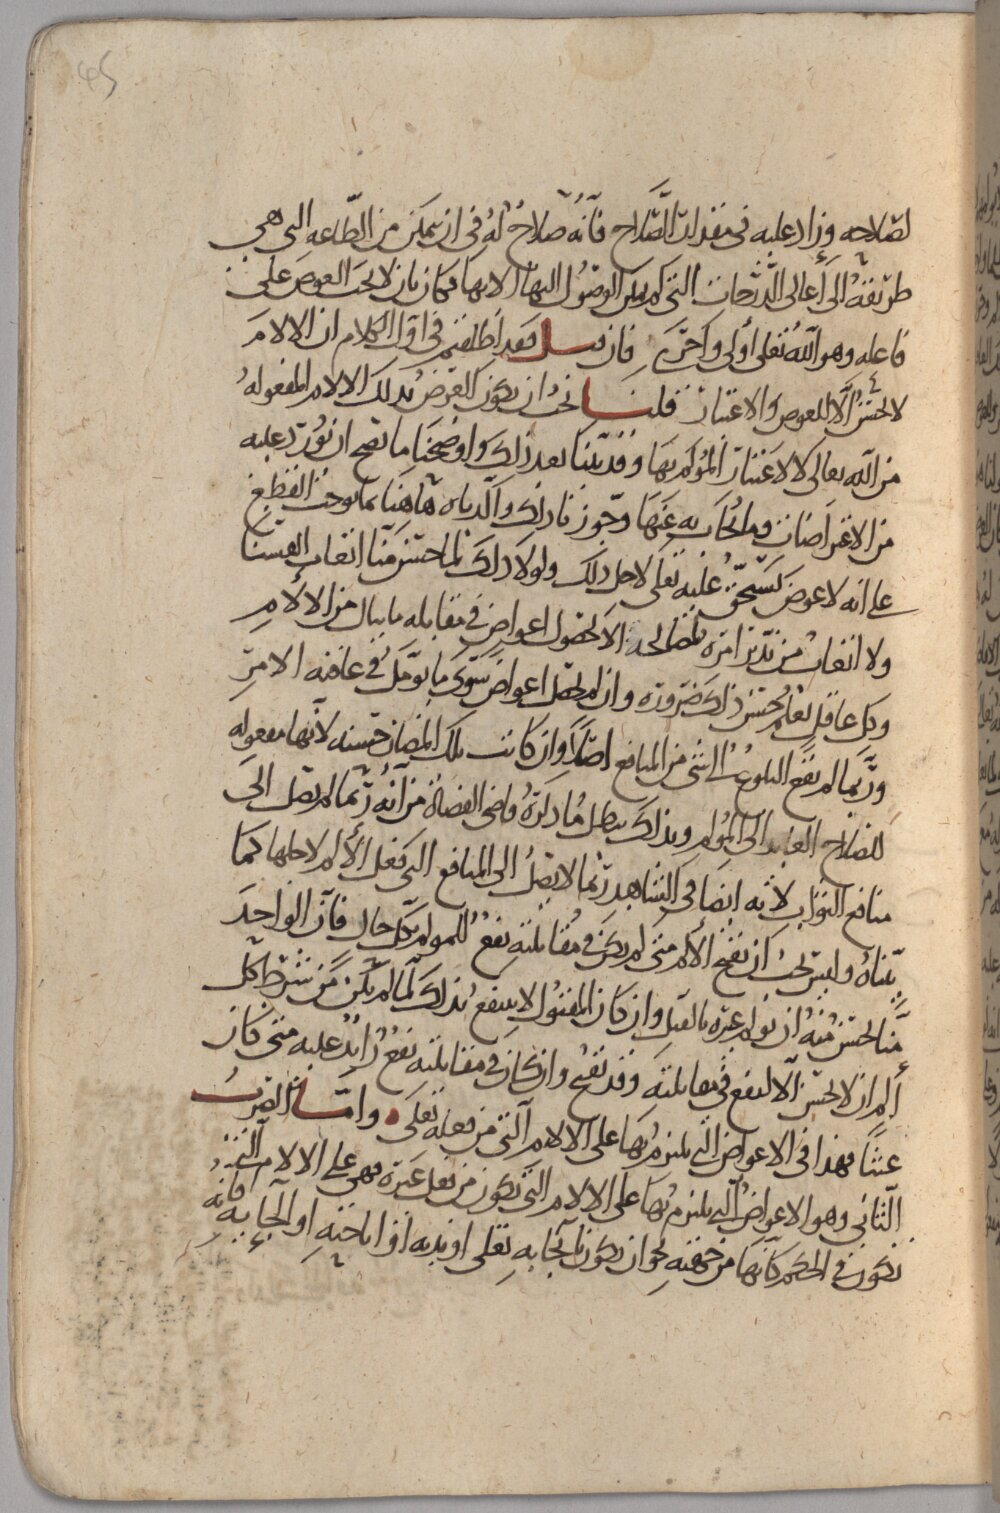 لصلاحه وزاد عليه في مقدار الصلاح فانه صلاح له في ان يتمكن من الطاعه التي هي
طريقة الى أعالي الدرجات التي لم يمكن الوصول اليها الا بها فكان بان لا يجب العوض على
فاعله وهو الله تعلى أولى واحرى فان قيل فقد اطلقتم في اول الكلام ان الالام
لا تحسن الا للعوض والاعتبار قلنا نحن ان يكون الغرض بذلك الالام المفعوله
من الله تعالى كالاعتبار للمؤلم بها وقد بينا بعد ذلك واوضحنا ما يصح ان يورد عليه
من الاعتراضات وما يجاب به عنها وجوزنا ذلك واكدناه هاهنا بما يوجب القطع
على انه لا عوض يستحق عليه تعلى لاجل ذلك ولولا ذلك لما حسن منا اتعاب انفسنا
ولا اتعاب من ندبر امره لمصالحه الا لحصول اعواض في مقابله ما ينال من الألام
وكل عاقل يعلم حسن ذلك ضروره وان لم تحصل اعواض سوى ما يؤمل في عاقبه الامر
وربما لم يقع البلوغ الى شي من المنافع اصلا وان كانت تلك المضار حسنه لانها مفعوله
للصلاح العايد الى المؤلم وبذلك يبطل ما ذكره قاضي القضاة من انه ربما لم يصل الى
منافع الثواب لانه ايضا في الشاهد ربما لا يصل الى المنافع التي فعل الألم لاجلها كما
بيناه وليس يجب ان يقبح الألم متى لم يكن في مقابلته نفع للمولم بكل حال فان الواحد
منا يحسن منه ان يولم غيره بالقتل وان كان المقتول لا ينتفع بذلك لما لم يكن من شرط كل
ألم ان لا يحسن الا لنفع في مقابلته وقد يقبح وان كان في مقابلته نفع زايد عليه متى كان
عبثا فهذا في الاعواض التي يلتزم بها على الالام التي من فعله تعلى واما الضرب
الثاني وهو الاعواض التي يلتزم بها على الالام التي تكون من فعل غيره فهي على الالام التي
تكون في الحكم كانها من جهته نحو ان يكون بايجابه تعلى او ندبه او اباحته او الجايه فانه